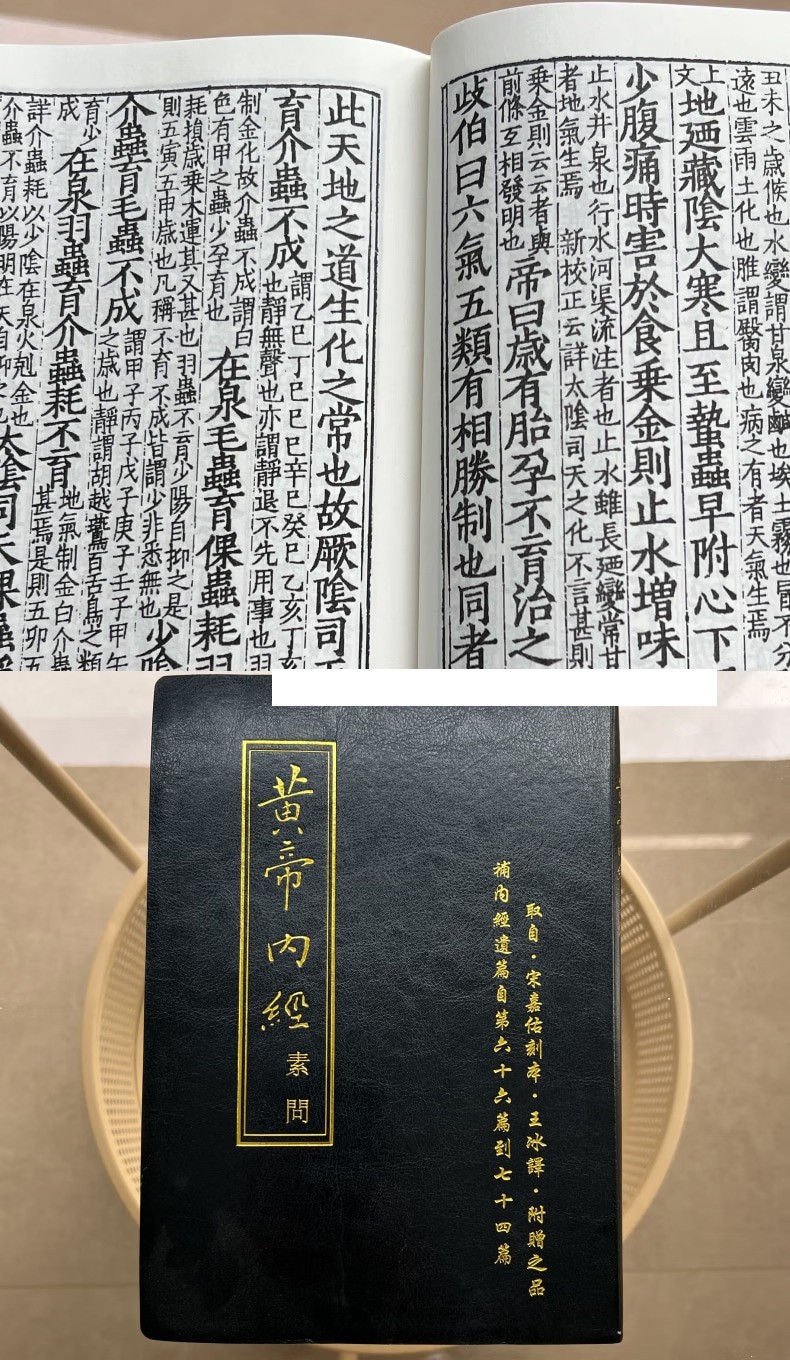 丑未之歲候也水變謂甘泉變鹹也埃土霧也冒不分
遠也雲雨土化也脽謂臀肉也病之有者天氣生焉
上
文
地廼藏陰大寒且至蟄蟲早附心下
少腹痛時害於食乗金則止水增味
止水井泉也行水河渠流注者也止水雖長廼變常甘
者地氣生焉 新校正云詳太陰司天之化不言甚則
乗金則云云者與
前條互相發明也
帝曰歲有胎孕不育治之
歧伯曰六氣五類有相勝制也同者
此天地之道生化之常也故厥陰司
育介蟲不成
謂乙巳丁巳己巳辛巳癸巳乙亥丁亥
也靜無聲也亦謂靜退不先用事也羽
制金化故介蟲不成謂白
色有甲之蟲少孕育也
在泉毛蟲育倮蟲耗羽
耗損歲乗木運其又甚也羽蟲不育少陽自抑之是
則五寅五申歲也凡稱不育不成皆謂少非悉無也
少陰
介蟲育毛蟲不成
謂甲子丙子戊子庚子壬子甲午
之歲也靜謂胡越鷰百舌鳥之類
育少
成
在泉羽蟲育介蟲耗不育
地氣制金白介蟲
甚焉是則五卯五
詳介蟲耗以少陰在泉火剋金也
介蟲不育以陽明在天自抑之也
太陰司天倮蟲
黃帝內經 素問
取自·宋嘉佑刻本·王冰譯·附贈之品
補內經遺篇自第六十六篇到七十四篇